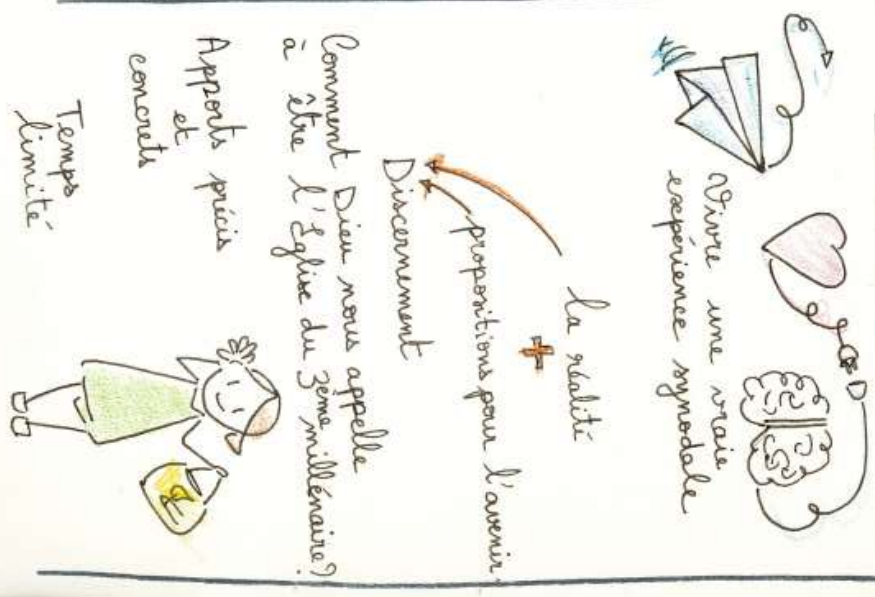 Vivre une vraie
expérience synodale
la réalité
+
propositions pour l'avenir.
Discernement
Comment Dieu nous appelle
à être l'Église du 3ème millénaire?
Apports précis
et
concrets
Temps
limité